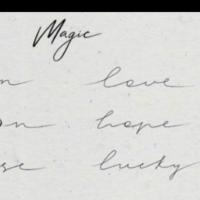 Magic
love
on hope
se lucky